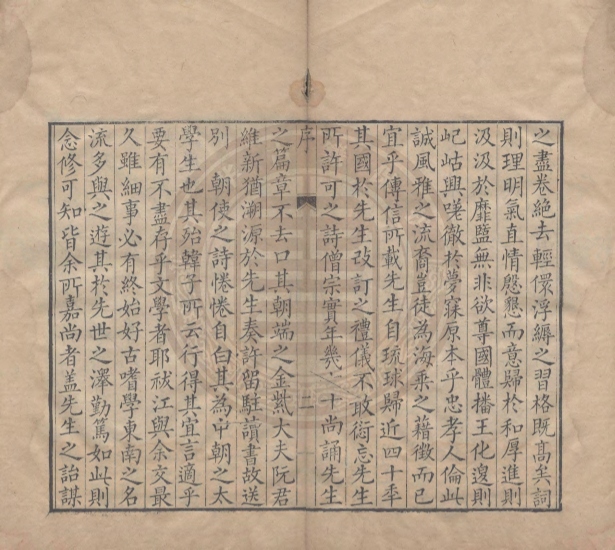 之盡卷絶去輕儇浮縟之習格既髙矣詞
則理明氣直情慇懇而意歸於和厚進則
汲汲於靡盬無非欲尊國體播王化邊則
屺岵興嗟徹於夢寐原本乎忠孝人倫此
誠風雅之流裔豈徒為海乗之籍徴而已
宜乎傳信所載先生自琉球歸近四十年
其國於先生改訂之禮儀不敢衍忘先生
所許可之詩僧宗實年幾八十尚誦先生
序
二
之篇章不去口其朝端之金紫大夫阮君
維新猶溯源於先生奏許留駐讀書故送
别 朝使之詩惓惓自白其為中朝之太
學生也其殆韓子所云行得其宜言適乎
要有不盡存乎文學者耶祓江與余交最
久雖細事必有終始好古嗜學東南之名
流多與之遊其於先世之澤勤篤如此則
念修可知皆余所嘉尚者盖先生之詒謀